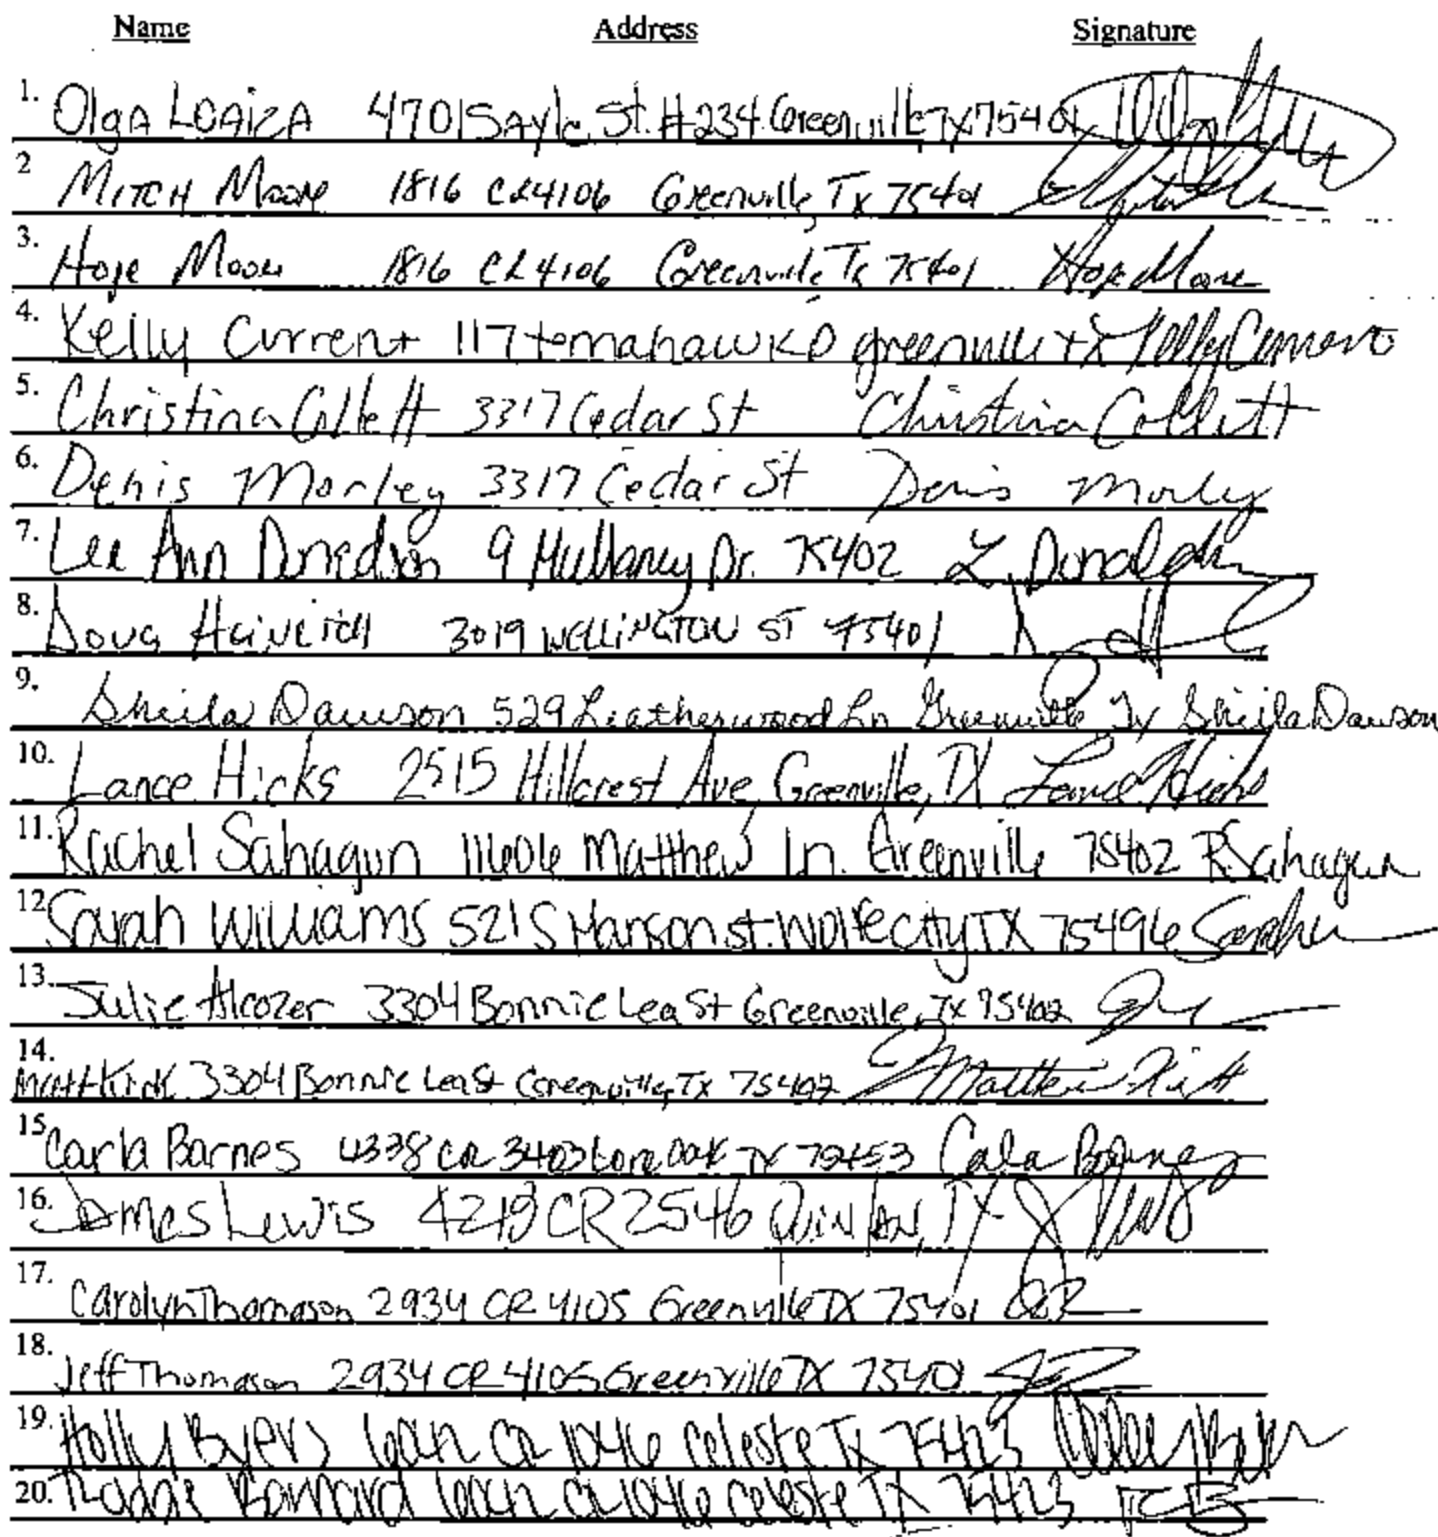 Name Address Signature
1. Olga Loaiza 4701 Sayle St. #234 Greenville TX 75401
2 Mitch Moore 1816 CR 4106 Greenville, Tx 75401
3. Hope Moore 1816 CR 4106 Greenville Tx 75401 Hope Moore
4. Kelly Current 117 tomahawk D greenville tx Kelly Current
5. Christina Collett 3317 Cedar St Christina Collett
6. Denis Morley 3317 Cedar St Denis Morley
7. Lee Ann Donaldson 9 Mullaney Dr. 75402 L Donaldson
8. Doug Heinrich 3019 WELLINGTON ST 75401
9. Sheila Dawson 529 Leatherwood Ln Greenville Tx Sheila Dawson
10. Lance Hicks 2515 Hillcrest Ave, Greenville, TX Lance Hicks
11. Rachel Sahagun 11606 Matthew Ln. Greenville 75402 R. Sahagun
12 Sarah Williams 521 S Hanson st. Wolfe city TX 75496
13. Julie Alcozer 3304 Bonnie Lea St Greenville, Tx 75402
14. Matt Kirk 3304 Bonnie Lea St Greenville, Tx 75402 Matthew Kirk
15 Carla Barnes 4338 CR 3403 Lone Oak TX 75453 Carla Barnes
16. James Lewis 4213 CR 2546 Quinlan, TX
17. Carolyn Thomason 2934 CR 4105 Greenville TX 75401
18. Jeff Thomason 2934 CR 4105 Greenville TX 75401
19. Holly Byers CR 1046 Celeste Tx 75423
20. CR 1046 Celeste TX 75423